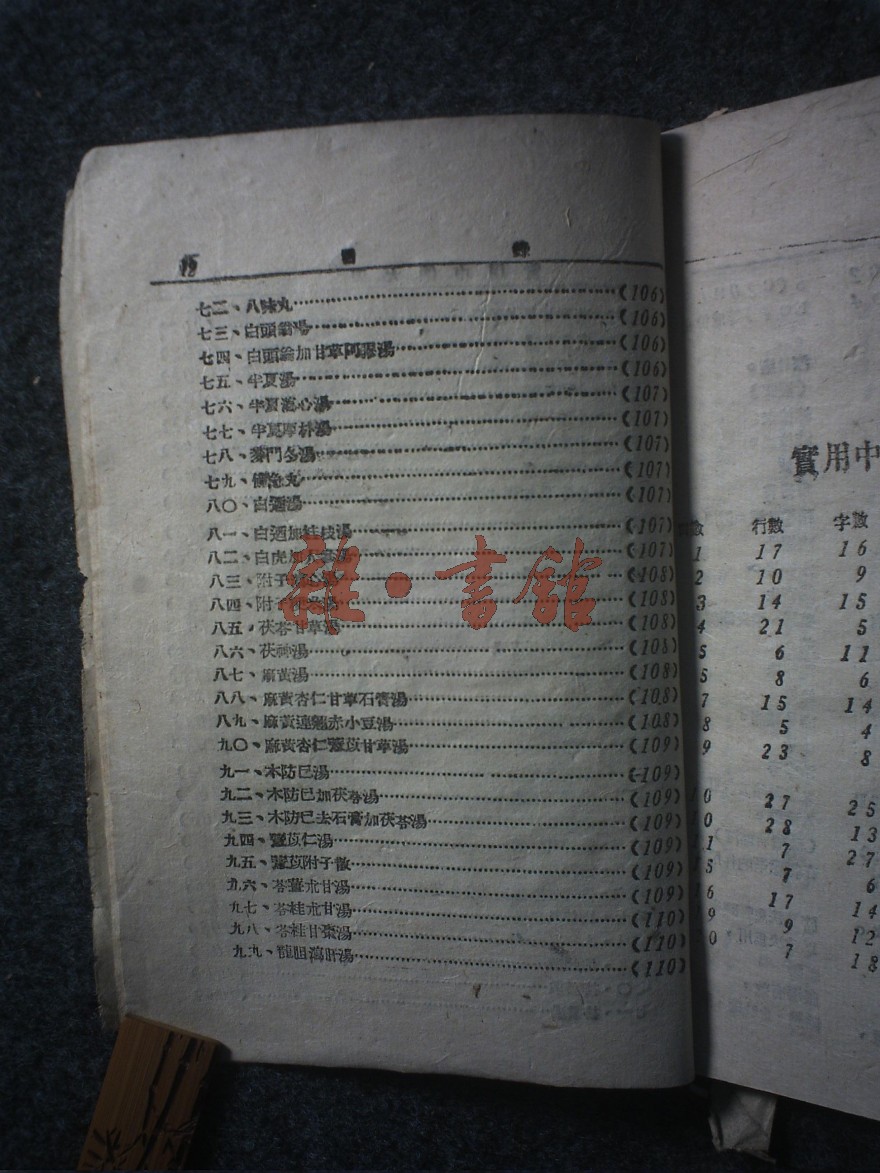 12 目 錄
七二、八味丸(106)
七三、白頭翁湯(106)
七四、白頭翁加甘草阿膠湯(106)
七五、半夏湯(106)
七六、半夏瀉心湯(107)
七七、半夏厚朴湯(107)
七八、麥門冬湯(107)
七九、備急丸(107)
八〇、白通湯(107)
八一、白通加桂枝湯(107)
八二、白虎加人參湯(107)
八三、附子瀉心湯(108)
八四、附子粳米湯(108)
八五、茯苓甘草湯(108)
八六、茯神湯(108)
八七、麻黃湯(108)
八八、麻黃杏仁甘草石膏湯(108)
八九、麻黃連翹赤小豆湯(108)
九〇、麻黃杏仁薏苡甘草湯(109)
九一、木防已湯(109)
九二、木防已加茯苓湯(109)
九三、木防已去石膏加茯苓湯(109)
九四、薏苡仁湯(109)
九五、薏苡附子散(109)
九六、苓薑朮甘湯(109)
九七、苓桂朮甘湯(110)
九八、苓桂甘棗湯(110)
九九、龍胆瀉肝湯(110)
實用中
數 行數 字數
1 17 16
2 10 9
3 14 15
4 21 5
5 6 11
5 8 6
7 15 14
8 5 4
9 23 8
10 27 25
10 28 13
11 7 27
15 7 6
16 17 14
9 9 12
0 7 18
雜·書館